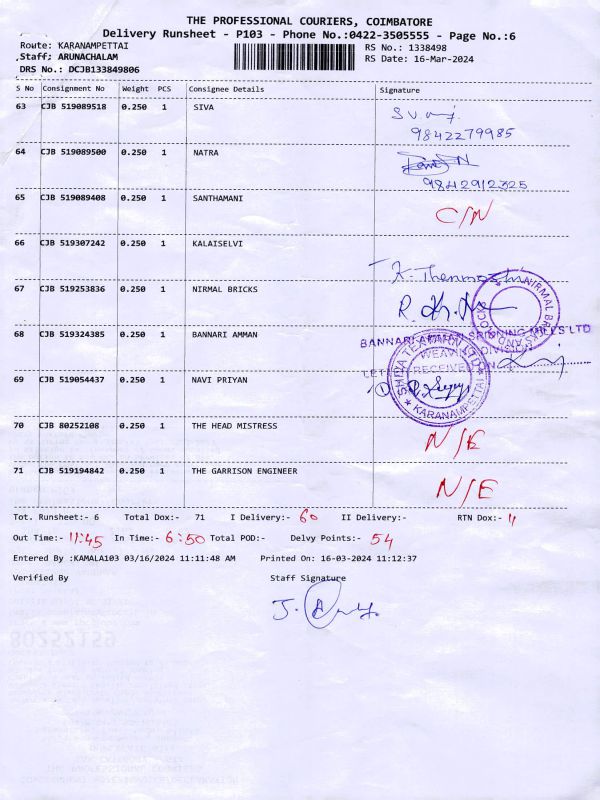 THE PROFESSIONAL COURIERS, COIMBATORE
Delivery Runsheet - P103 - Phone No.:0422-3505555 - Page No.:6
Route: KARANAMPETTAI RS No.: 1338498
Staff; ARUNACHALAM RS Date: 16-Mar-2024
DRS No.: DCJB133849806
S No Consignment No Weight PCS Consignee Details Signature
63 CJB 519089518 0.250 1 SIVA
9842279985
64 CJB 519089500 0.250 1 NATRA
9842912325
65 CJB 519089408 0.250 1 SANTHAMANI C/N
66 CJB 519307242 0.250 1 KALAISELVI
67 CJB 519253836 0.250 1 NIRMAL BRICKS
68 CJB 519324385 0.250 1 BANNARI AMMAN
69 CJB 519054437 0.250 1 NAVI PRIYAN
KARANAMPETTAI
70 CJB 80252108 0.250 1 THE HEAD MISTRESS N/E
71 CJB 519194842 0.250 1 THE GARRISON ENGINEER N/E
Tot. Runsheet:- 6 Total Dox:- 71 I Delivery:- 60 II Delivery:- RTN Dox:- 11
Out Time:- 11:45 In Time:- 6:50 Total POD:- Delvy Points:- 54
Entered By :KAMALA103 03/16/2024 11:11:48 AM Printed On: 16-03-2024 11:12:37
Verified By Staff Signature